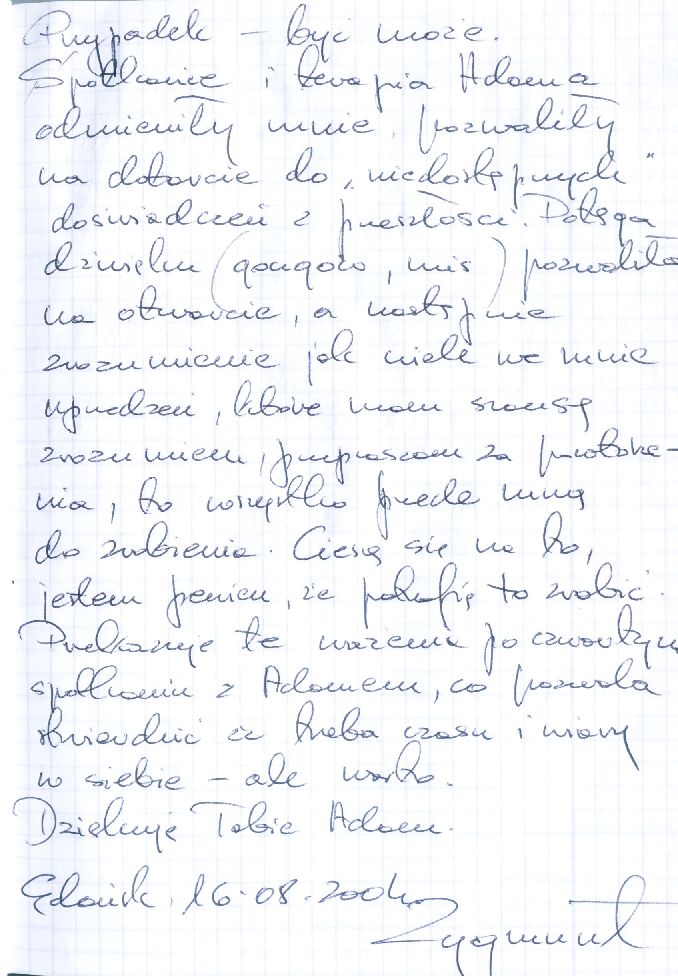 Przypadek – być może.
Spotkanie i terapia Adama
odmieniły mnie, pozwoliły
na dotarcie do „niedostępnych"
doświadczeń z przeszłości. Potęga
dźwięku (gongów, mis) pozwoliła
na otwarcie, a następnie
zrozumienie jak wiele we mnie
uprzedzeń, które mam szansę
zrozumieć, przepraszam za
nia, to wszystko przede mną
do zrobienia. Cieszę się na to,
jestem pewien, że potrafię to zrobić.
Przekazuję te wrażenia po czwartym
spotkaniu z Adamem, co pozwala
stwierdzić że trzeba czasu i wiary
w siebie – ale warto.
Dziękuję Tobie Adam.
Gdańsk, 16.08.
Zygmunt